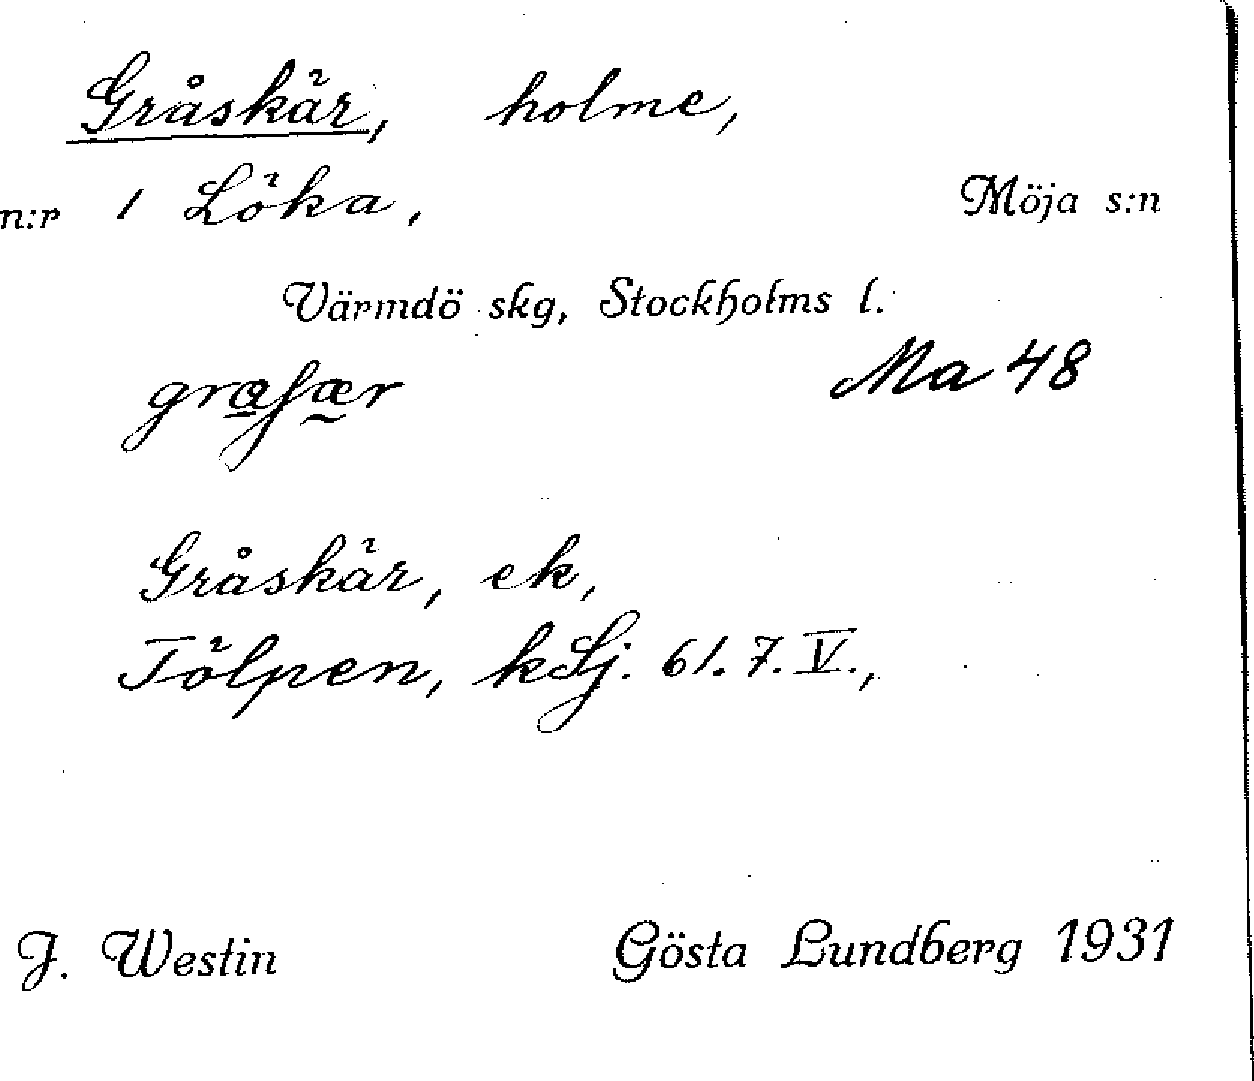 Gråskär, holme,
n:r 1 Löka, Möja s:n
Värmdö skg, Stockholms l.
Ma 48
Gråskär, ek,
Tölpen, kSj. 61. 7. V.,
J. Westin Gösta Lundberg 1931